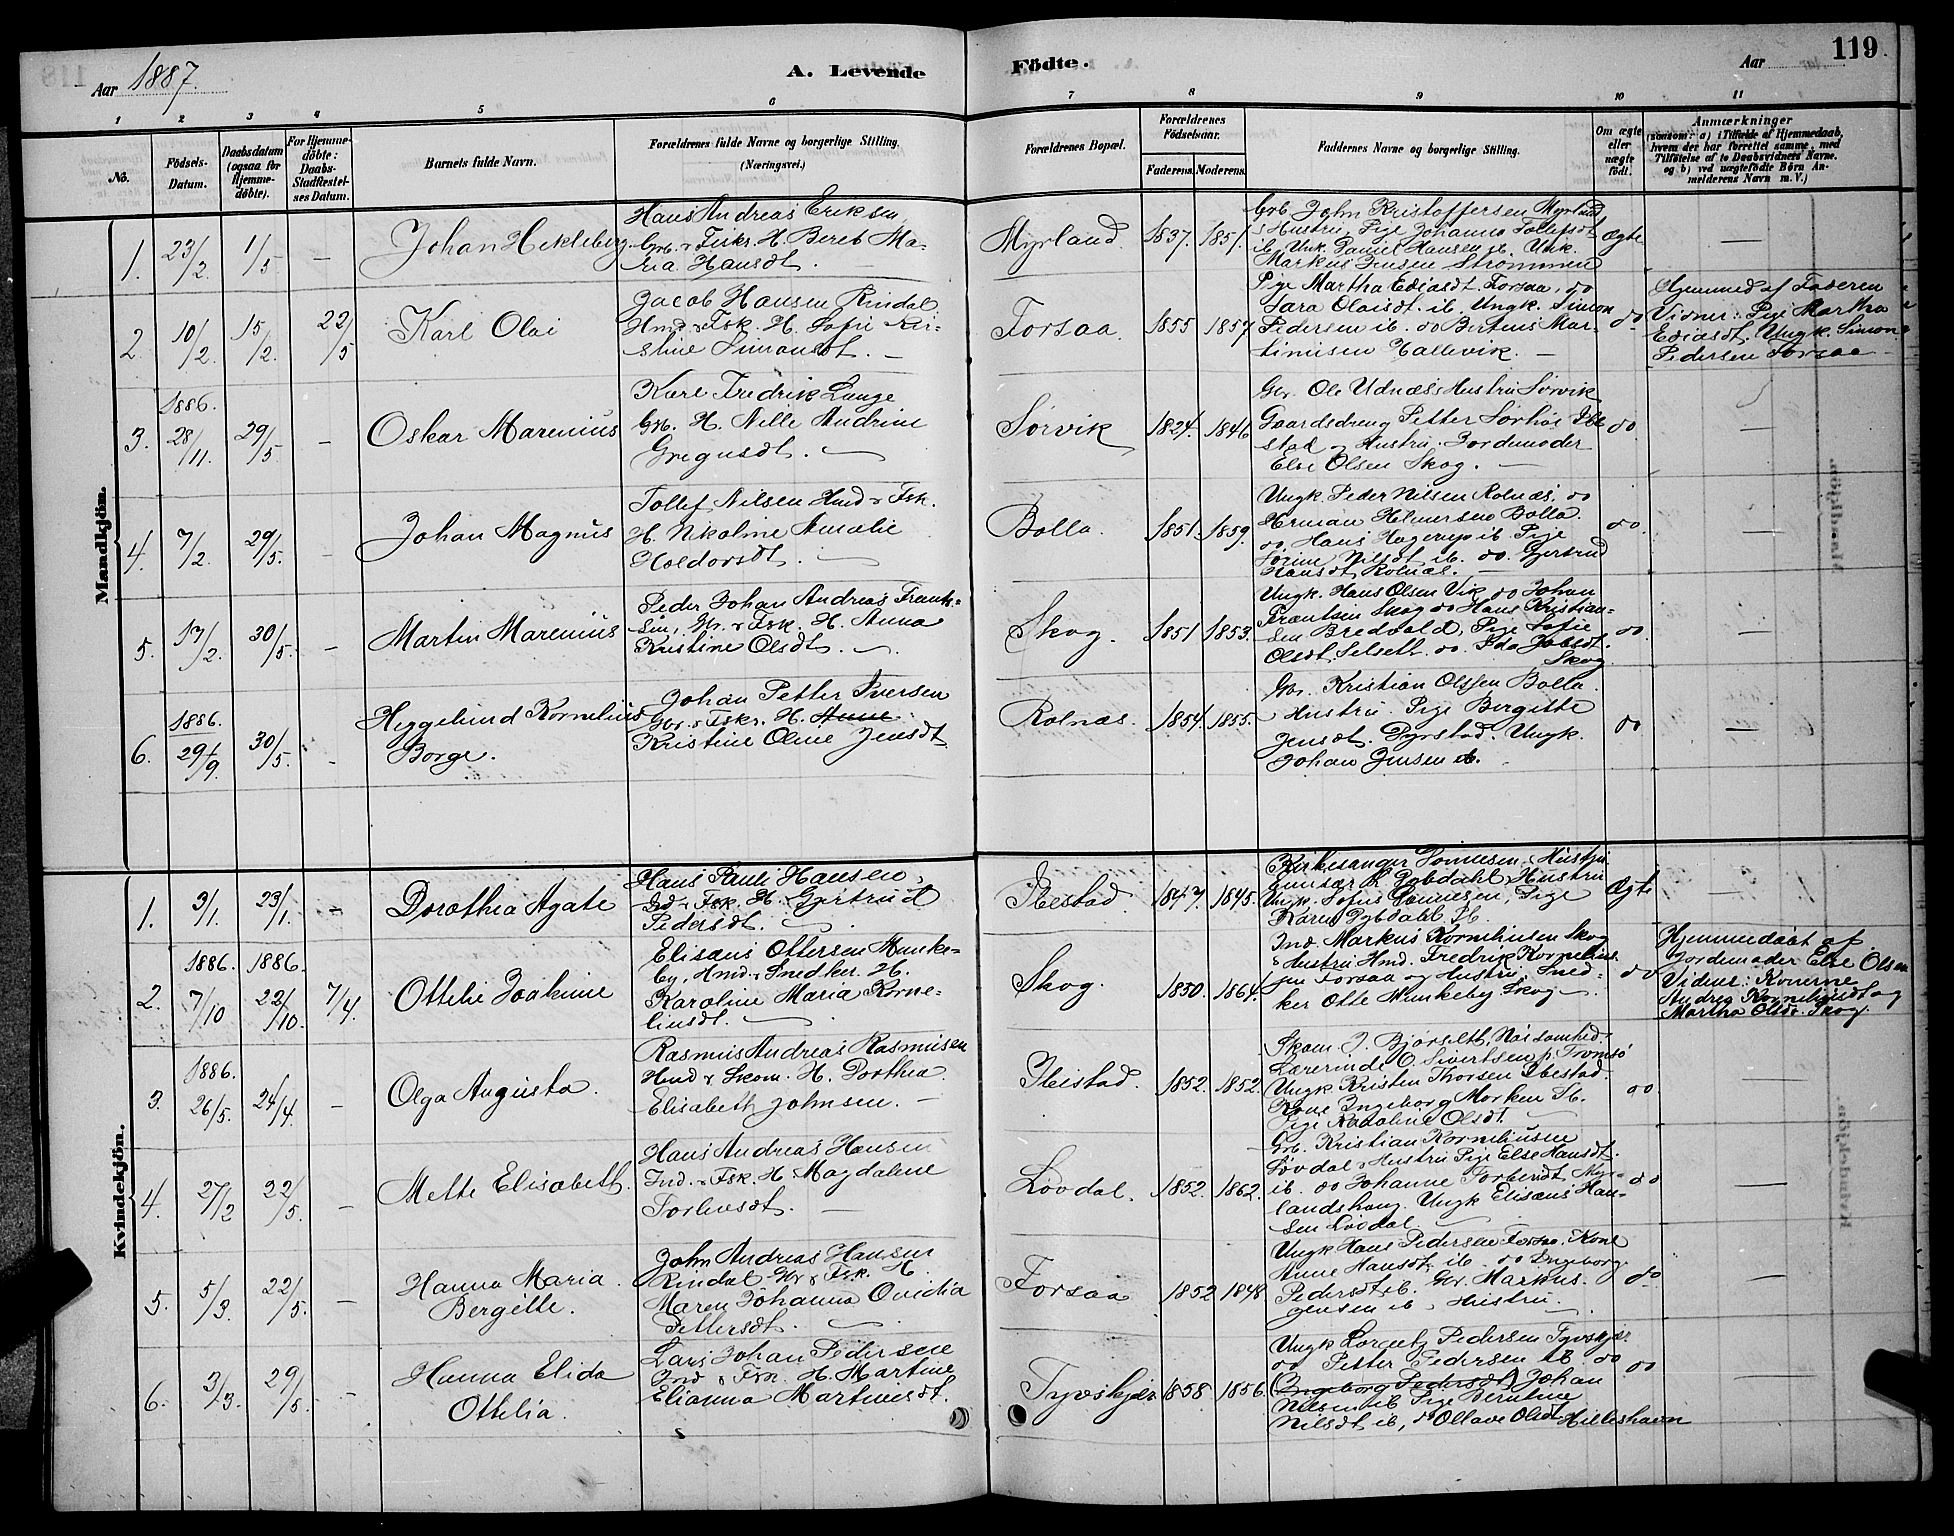 Aar 1887.
A. Levende
Födte.
Aar
119
1
2
3
4
5
6
7
8
9
10
11
No.
Födsels-
Datum.
Daabsdatum
(ogsaa for
Hjemme-
döbte).
For Hjemme-
döbte:
Daabs-
Stadfæstel-
ses Datum.
Barnets fulde Navn.
Forældrenes fulde Navne og borgerlige Stilling.
(Næringsvei.)
Forældrenes Bopæl.
Forældrenes
Födselsaar.
Faderens.
Moderens.
Faddernes Navne og borgerlige Stilling.
Om ægte
eller
uægte
født.
Anmærkninger
(saasom: a) i Tilfælde af Hjemmedaab,
hvem der har forrettet samme, med
Tilföielse af to Daabsvidners Navne.
og b) ved uægtefödte Börn An-
melderens Navn m. V.)
Mandkjön.
1. 23/2 1/5 — Johan Hekleberg
Hans Andreas Eriksen
Grb. & Fiskr. H. Beret Ma-
ria Hansdt.
Myrland. 1837. 1851.
Grb John Kristoffersen Myrland
& Hustru, Pige Johanna Tollefsdt
ib, Ungk. Daniel Hansen ib. Ungk.
Markus Jensen Strømmen
Ægte —
2. 10/2 15/2 22/5 Karl Olai
Jacob Hansen Rindal
Hmd. & Fsk. H. Sofie Kir-
stine Simonsdt. —
Forsaa. 1855 1857
Pige Martha Ediasdt. Forsaa, do
Sara Olaisdt. ib. Ungk. Simon
Pedersen ib. do Berteus Mar-
tinusen Hallevik. —
do
Hjemmed af Faderen
Vidner: Pige Martha
Ediasdt, Ungk. Simon
Pedersen Forsaa
3. 1886. 28/11. 29/5 — Oskar Marenius
Karl Fredrik Lange
Grb. H. Nille Andrine
Gregusdt.
Sørvik 1824. 1846
Gbr. Ole Udnæs, Hustru Sørvik
Gaardsdreng Petter Sørhøi Ibe
stad & Hustru. Jordemoder
Else Olsen Skog. —
do. —
4. 7/2. 29/5. — Johan Magnus
Tollef Nilsen Hmd & Fsk.
H. Nikoline Amalie
Holdorsdt.
Bolla. 1851. 1859.
Ungk. Peder Nilsen Rolnæs, do
Herman Hilmersen Bolla.
do Hans Hagerup ib. Pige
Sørine Nilsdt ib. do. Gjertrud
Hansdt Rolnæs.
do. —
5. 13/2. 30/5. — Martin Marenius
Peder Johan Andreas Frants-
sen, Gbr. & Fsk. H. Anna
Kristine Olsdt.
Skog. 1851 1853.
Ungk. Hans Olsen Vik do Johan
Frantsen Skog do Hans Kristian-
sen Bredvold, Pige Sofie
Olsdt. Selsett. do. Ida Jakobsdt.
Skog
do. —
6. 1886. 29/9. 30/5. - Heggelund Kornelius
Borge.
Johan Petter Iversen
Gbr. & Fsk. H. Anne
Kristine Oline Jensdt
Rolnæs. 1854. 1855.
Gbr. Kristian Olssen Bolla.
& Hustru. Pige Bergitte
Jensdt. Dyrstad. Ungk.
Johan Jensen ib.
do —
Kvindekjön.
1. 3/1. 23/1. — Dorothea Agate
Hans Pauli Hansen,
Ind & Fsk. H. Gjertrud
Pedersdt.
Ibestad. 1847. 1845.
Karen Dybdahl ib.
Ægte —
2. 1886. 7/10 1886. 22/10. 7/4. Ottelie Joakime
Elisæus Ottersen Munke-
by, Hmd. & Snedker. H.
Karoline Maria Korne-
liusdt.
Skog. 1850. 1864.
Ind. Markus Korneliusen Skog
& Hustru Hmd. Fredrik Kornelius
sen Forsaa og Hustru. Sned-
ker Otte Munkeby Skog
do
Hjemmedøbt af
Jordemoder Else Olsen
Vidner: Konerne
Andrea Korneliusdt og
Martha Olsdt. Skog.
3. 1886. 26/5. 24/4. — Olga Augusta.
Rasmus Andreas Rasmusen
Hmd & Skom. H. Dorthea
Elisabeth Johnsen. —
Ibestad. 1852. 1852.
Lærerinde O. Sivertsen p. Tromsø
Ungk Kristen Thorsen Ibestad.
Kone Ingeborg Morken ib.
Pige Karoline Olsdt
do. —
4. 27/2 22/5. — Mette Elisabeth.
Hans Andreas Hansen
Ind. & Fsk. H. Magdalene
Torbersdt. —
Løvdal. 1852. 1862.
Grb. Kristian Korneliusen
Løvdal & Hustru Pige Else Hansdt.
ib. do Johanne Torbersdt. Myr-
landshaug. Ungk Elisæus Han-
sen Løvdal
do —
5. 5/3. 22/5. — Hanna Maria
Bergitte.
John Andreas Hansen
Rindal Gbr & Fsk. H.
Maren Johanna Ovidia
Pettersdt.
Forsaa 1852 1848
Ungk Hans Pedersen Forsaa. Kone
Anne Hansdt. ib. do Ingeborg
Pedersdt ib. Gbr. Markus
Jensen ib & Hustru.
do —
6. 3/3. 29/5. — Hanna Elida
Ottelia.
Lars Johan Pedersen
Ind & Fsk. H. Martine
Elianna Martinusdt.
Tyvskjær 1858. 1856.
Ungk Lorentz Pedersen Tyvskjær
do Petter Pedersen ib. do
Ingeborg Pedersdt, Johan
Nilsen ib Pige Berntine
Nilsdt ib, do Ollave Olsdt Hilleshavn
do —